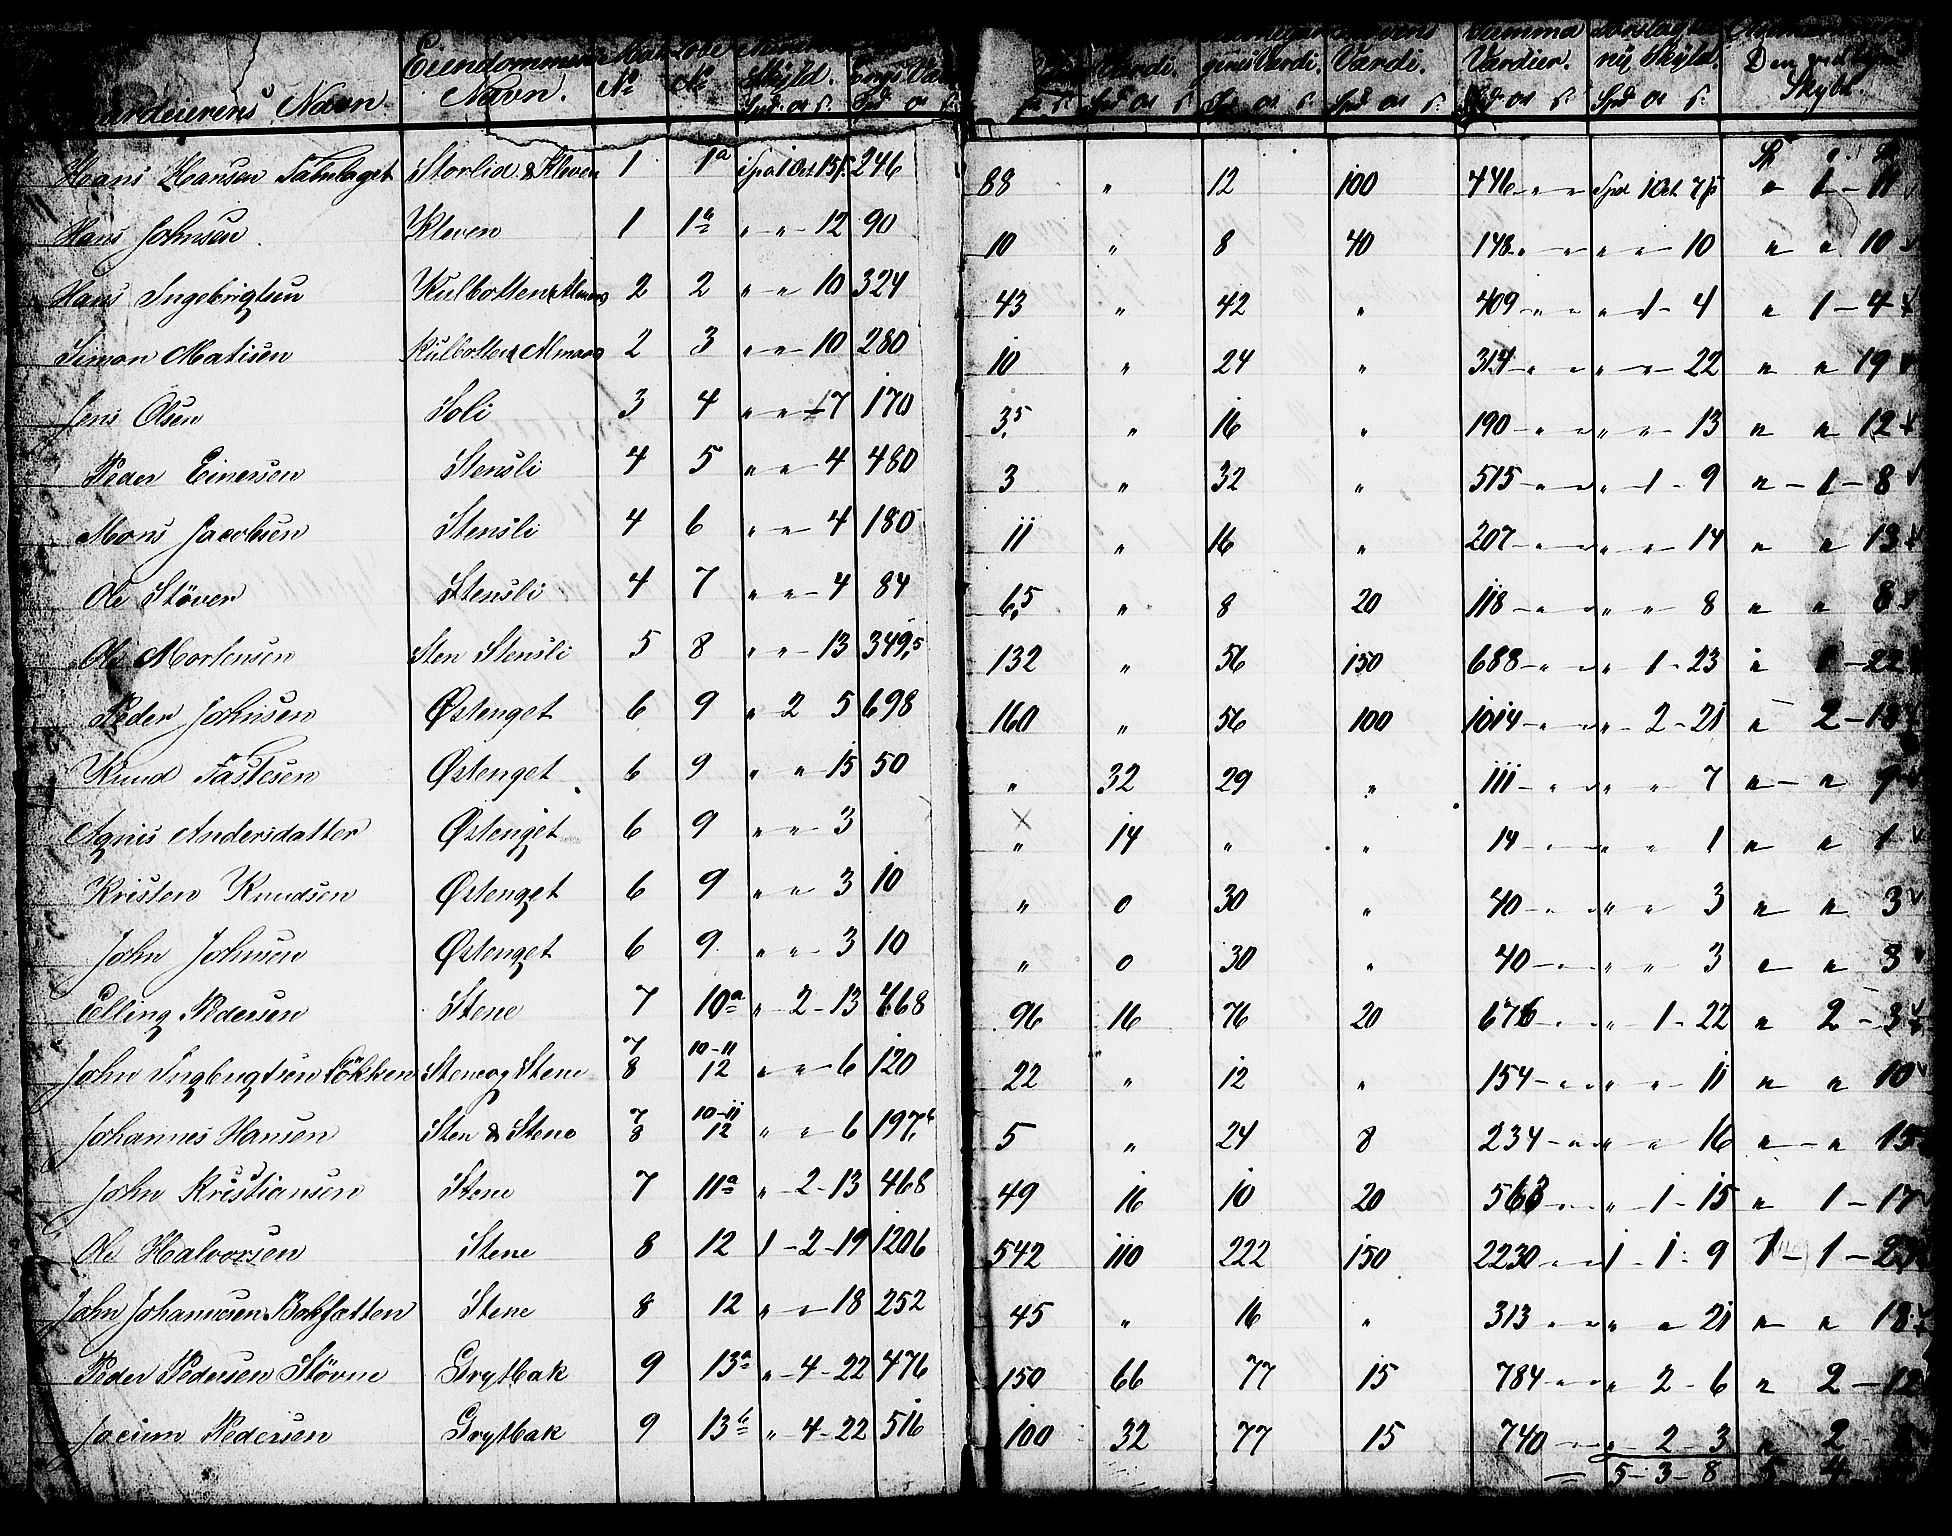 Eiendommens Værdi. Værdi. Summa
Navn. № № Skyld. Værdi. Værdi. Værdier. ny Skyld. Skyld.
Navn. Spd Ort ß. Spd Ort ß. Spd Ort ß. Spd Ort ß. Spd Ort ß.
Hans Hansen Storlid & Kleven 1 1a 1 Ort 15 ß 246 88 " 12 100 446 " " Spd 1 Ort " 1 - 11
Hans Johnsen Kleven 1 1b " " 12 90 10 " 8 40 148 " " " " 10 " " 10
Hans Ingebrigtsen Kulbotten & Almaas 2 2 " " 10 324 43 " 42 " 409 " " " 1 - 4 " 1 - 4
Simon Matisen Kulbotten & Almaas 2 3 " " 10 280 10 " 24 " 314 " " " " 22 " " 19
Jens Olsen Soli 3 4 " " 17 170 3,5 " 16 " 190 " " " " 13 " " 12
Peder Einersen Stensli 4 5 " " 4 480 3 " 32 " 515 " " " 1 - 9 " - 1 - 8
Mons Jacobsen Stensli 4 6 " " 4 180 11 " 16 " 207 " " " " 14 " " 13
Ole Støver Stensli 4 7 " " 4 84 6,5 " 8 20 118 " " " " 8 " " 8
Ole Mortensen Sten Stensli 5 8 " " 13 349,5 132 " 56 150 688 " " " 1 - 23 " 1 - 22
Peder Johnsen Østenget 6 9 " 2 5 698 160 " 56 100 1014 " " " 2 - 21 " 2 - 18
Knud Fastesen Østenget 6 9 " " 15 50 " 32 29 " 111 " " " " 7 " - " 9
Agnis Andersdatter Østenget 6 9 " " 3 × " 14 " " 14 " " " " 1 " " 1
Kristen Knudsen Østenget 6 9 " " 3 10 " 0 30 " 40 " " " " 3 " " 3
John Johnsen Østenget 6 9 " " 3 10 " 0 30 " 40 " " " " 3 " " 3
Elling Pedersen Stene 7 10a " 2 - 13 468 96 16 76 20 676 " " 1 - 22 " 2 - 3
7 10-11
John Ingbrigtsen Løkken Stene og Stene 8 12 " " 6 120 22 " 12 " 154 " " " " 11 " " 10
7 10-11
Johannes Hansen Sten & Stene 8 12 " " 6 197, 5 " 24 8 234 " " " " 16 " - " 15
John Kristiansen Stene 7 11a " 2 - 13 468 49 16 10 20 563 " " " 1 - 15 " 1 - 17
Ole Halvorsen Stene 8 12 1 - 2 - 19 1206 542 110 222 150 2230 " " 1 1 - 9 1 - 1 -
John Johannesen Stene 8 12 " " 18 252 45 " 16 " 313 " " " " 21 " " 18
Peder Pedersen Støvne Grytbak 9 13a " 4 - 22 476 150 66 77 15 784 " " " 2 - 6 " 2 - 12
Jocium Pedersen Grytbak 9 13b " 4 - 22 516 100 32 77 15 740 " " " 2 - 3 " 2
5 - 3 - 8 5 4